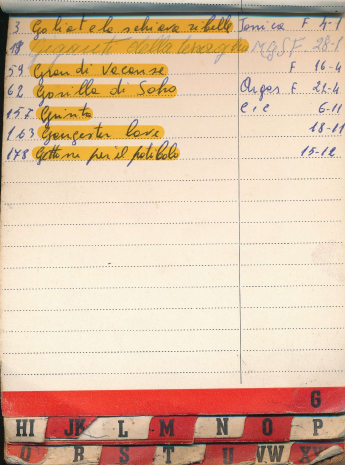 3 Goliat e la schiava ribelle Jonica F 4-1
18 Giganti della Tessaglia M.G.S F. 28-1
59 Grandi Vacanse F 16-4
62 Gorilla di Soho F 21-4
157 Grinta C I C 6-11
163 Gangster love 18-11
178 Gettone per il patibolo 15-12
G
HI JK L M N O P
Q R S T U VW XY